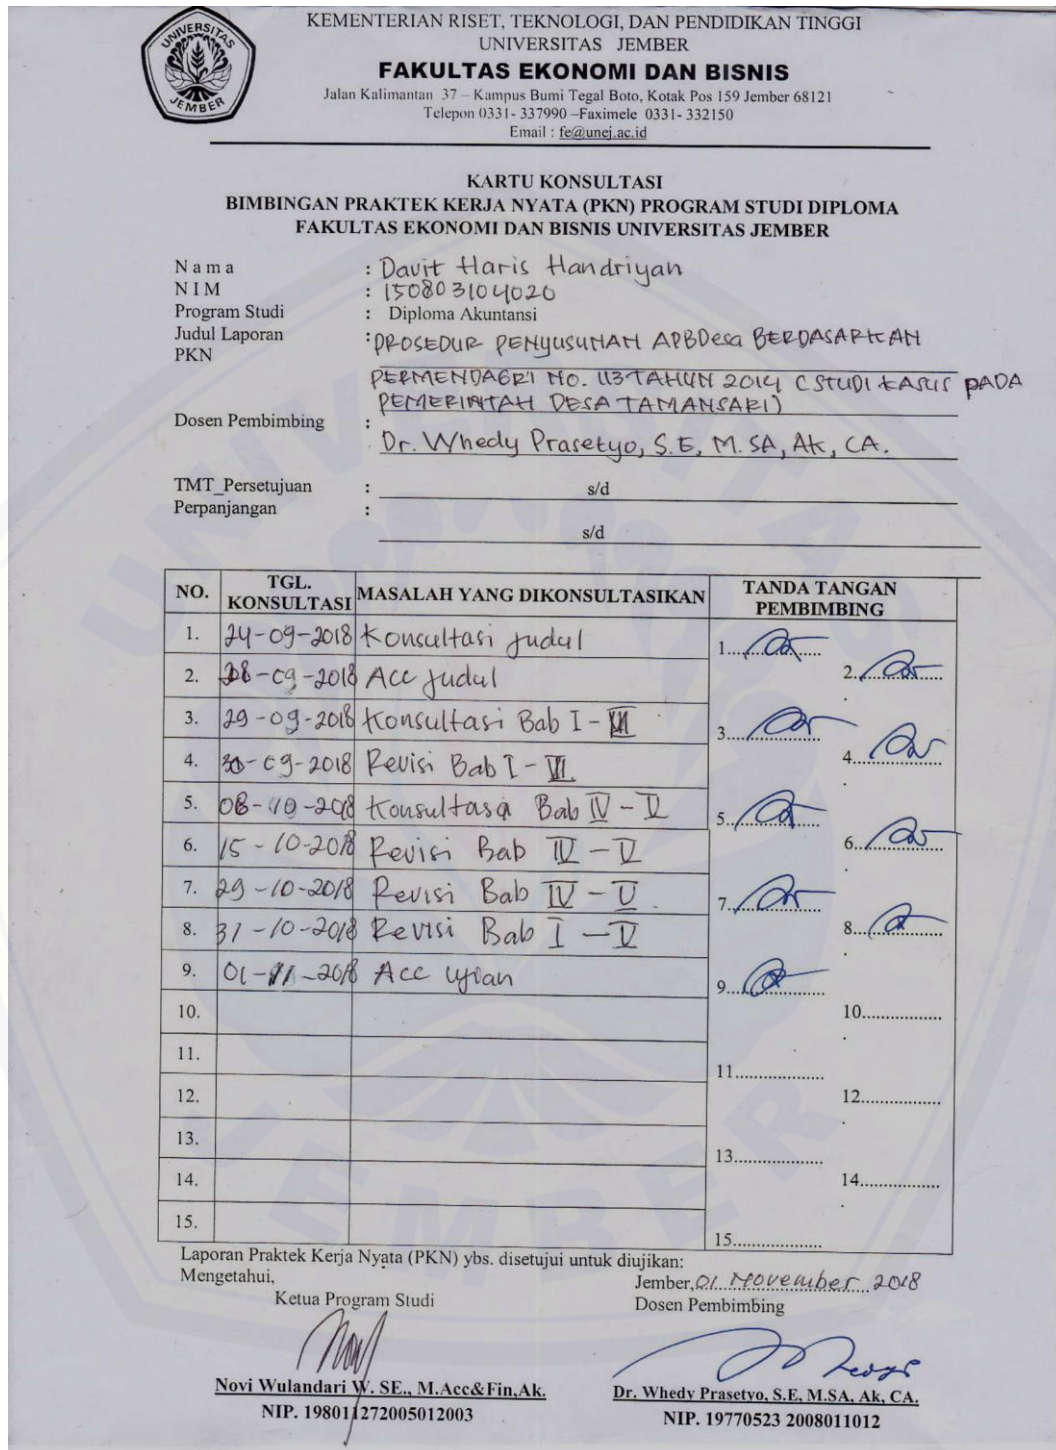 UNIVERSITAS
JEMBER
KEMENTERIAN RISET, TEKNOLOGI, DAN PENDIDIKAN TINGGI
UNIVERSITAS JEMBER
FAKULTAS EKONOMI DAN BISNIS
Jalan Kalimantan 37 – Kampus Bumi Tegal Boto, Kotak Pos 159 Jember 68121
Telepon 0331- 337990 –Faximele 0331- 332150
Email : fe@unej.ac.id
KARTU KONSULTASI
BIMBINGAN PRAKTEK KERJA NYATA (PKN) PROGRAM STUDI DIPLOMA
FAKULTAS EKONOMI DAN BISNIS UNIVERSITAS JEMBER
N a m a : Davit Haris Handriyan
N I M : 150803104020
Program Studi : Diploma Akuntansi
Judul Laporan : PROSEDUR PENYUSUNAN APBDesa BERDASARKAN
PKN
PERMENDAGRI NO. 113 TAHUN 2014 (STUDI KASUS PADA
PEMERINTAH DESA TAMANSARI)
Dosen Pembimbing :
Dr. Whedy Prasetyo, S.E, M.SA, Ak, CA.
TMT_Persetujuan : s/d
Perpanjangan :
s/d
NO. TGL. KONSULTASI MASALAH YANG DIKONSULTASIKAN TANDA TANGAN PEMBIMBING
1. 24-09-2018 Konsultasi Judul 1.............
2. 28-09-2018 Acc Judul 2.............
3. 29-09-2018 Konsultasi Bab I - III 3.............
4. 30-09-2018 Revisi Bab I - III 4.............
5. 08-10-2018 Konsultasi Bab IV - V 5.............
6. 15-10-2018 Revisi Bab IV - V 6.............
7. 29-10-2018 Revisi Bab IV - V. 7.............
8. 31-10-2018 Revisi Bab I - V 8.............
9. 01-11-2018 Acc Ujian 9.............
10. 10.............
11. 11.............
12. 12.............
13. 13.............
14. 14.............
15. 15.............
Laporan Praktek Kerja Nyata (PKN) ybs. disetujui untuk diujikan:
Mengetahui, Jember, 01 November 2018
Ketua Program Studi Dosen Pembimbing
Novi Wulandari W. SE., M.Acc&Fin,Ak. Dr. Whedy Prasetyo, S.E, M.SA, Ak, CA.
NIP. 198011272005012003 NIP. 19770523 2008011012